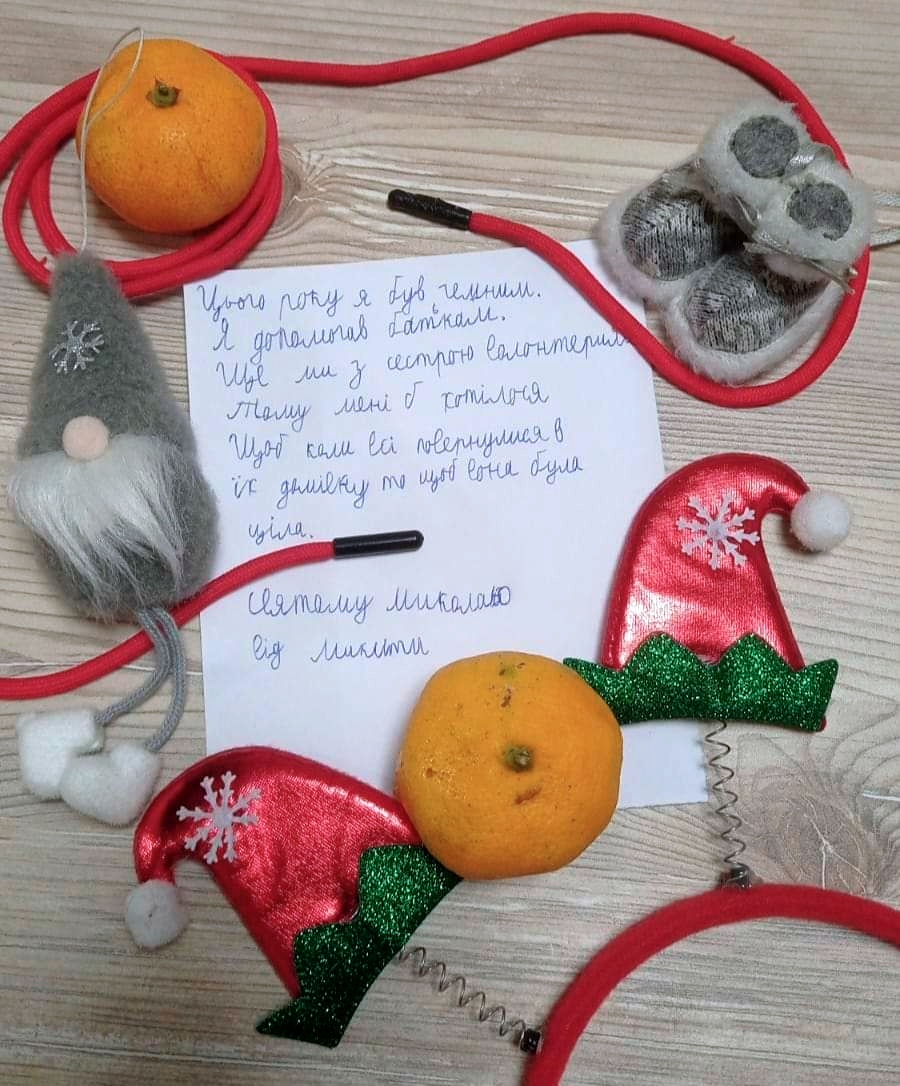 Цього року я був чемним.
Я допомагав батькам.
Ще ми з сестрою волонтерили
Тому мені б хотілося
Щоб коли всі повернулися в
їх домівку то щоб вона була
ціла.
Святому Миколаю
від Микити